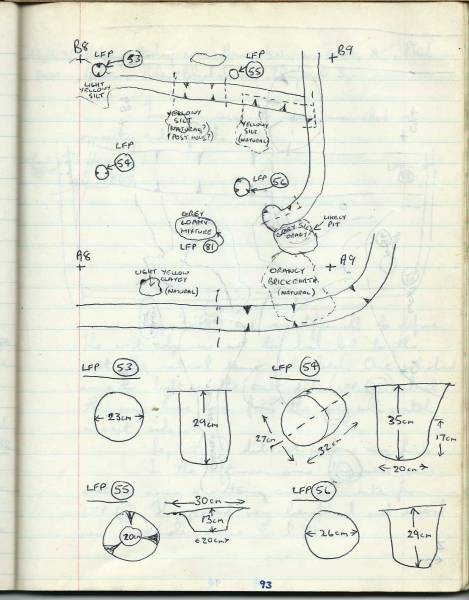 B8
LFP
53
LFP
55
B9
LIGHT
YELLOWY
SILT
YELLOWY
SILT
(NATURAL?)
(POST HOLE?)
YELLOWY
SILT
(NATURAL)
LFP
54
LFP
56
GREY
LOAMY
MIXTURE
LFP 81
LIKELY
PIT
A8
LIGHT YELLOW
CLAYEY
(NATURAL)
ORANGY
BRICKEARTH
(NATURAL)
A9
LFP 53
23cm
29cm
LFP 54
27cm
32cm
35cm
17cm
20cm
LFP 55
20cm
30cm
13cm
20cm
LFP 56
26cm
29cm
93